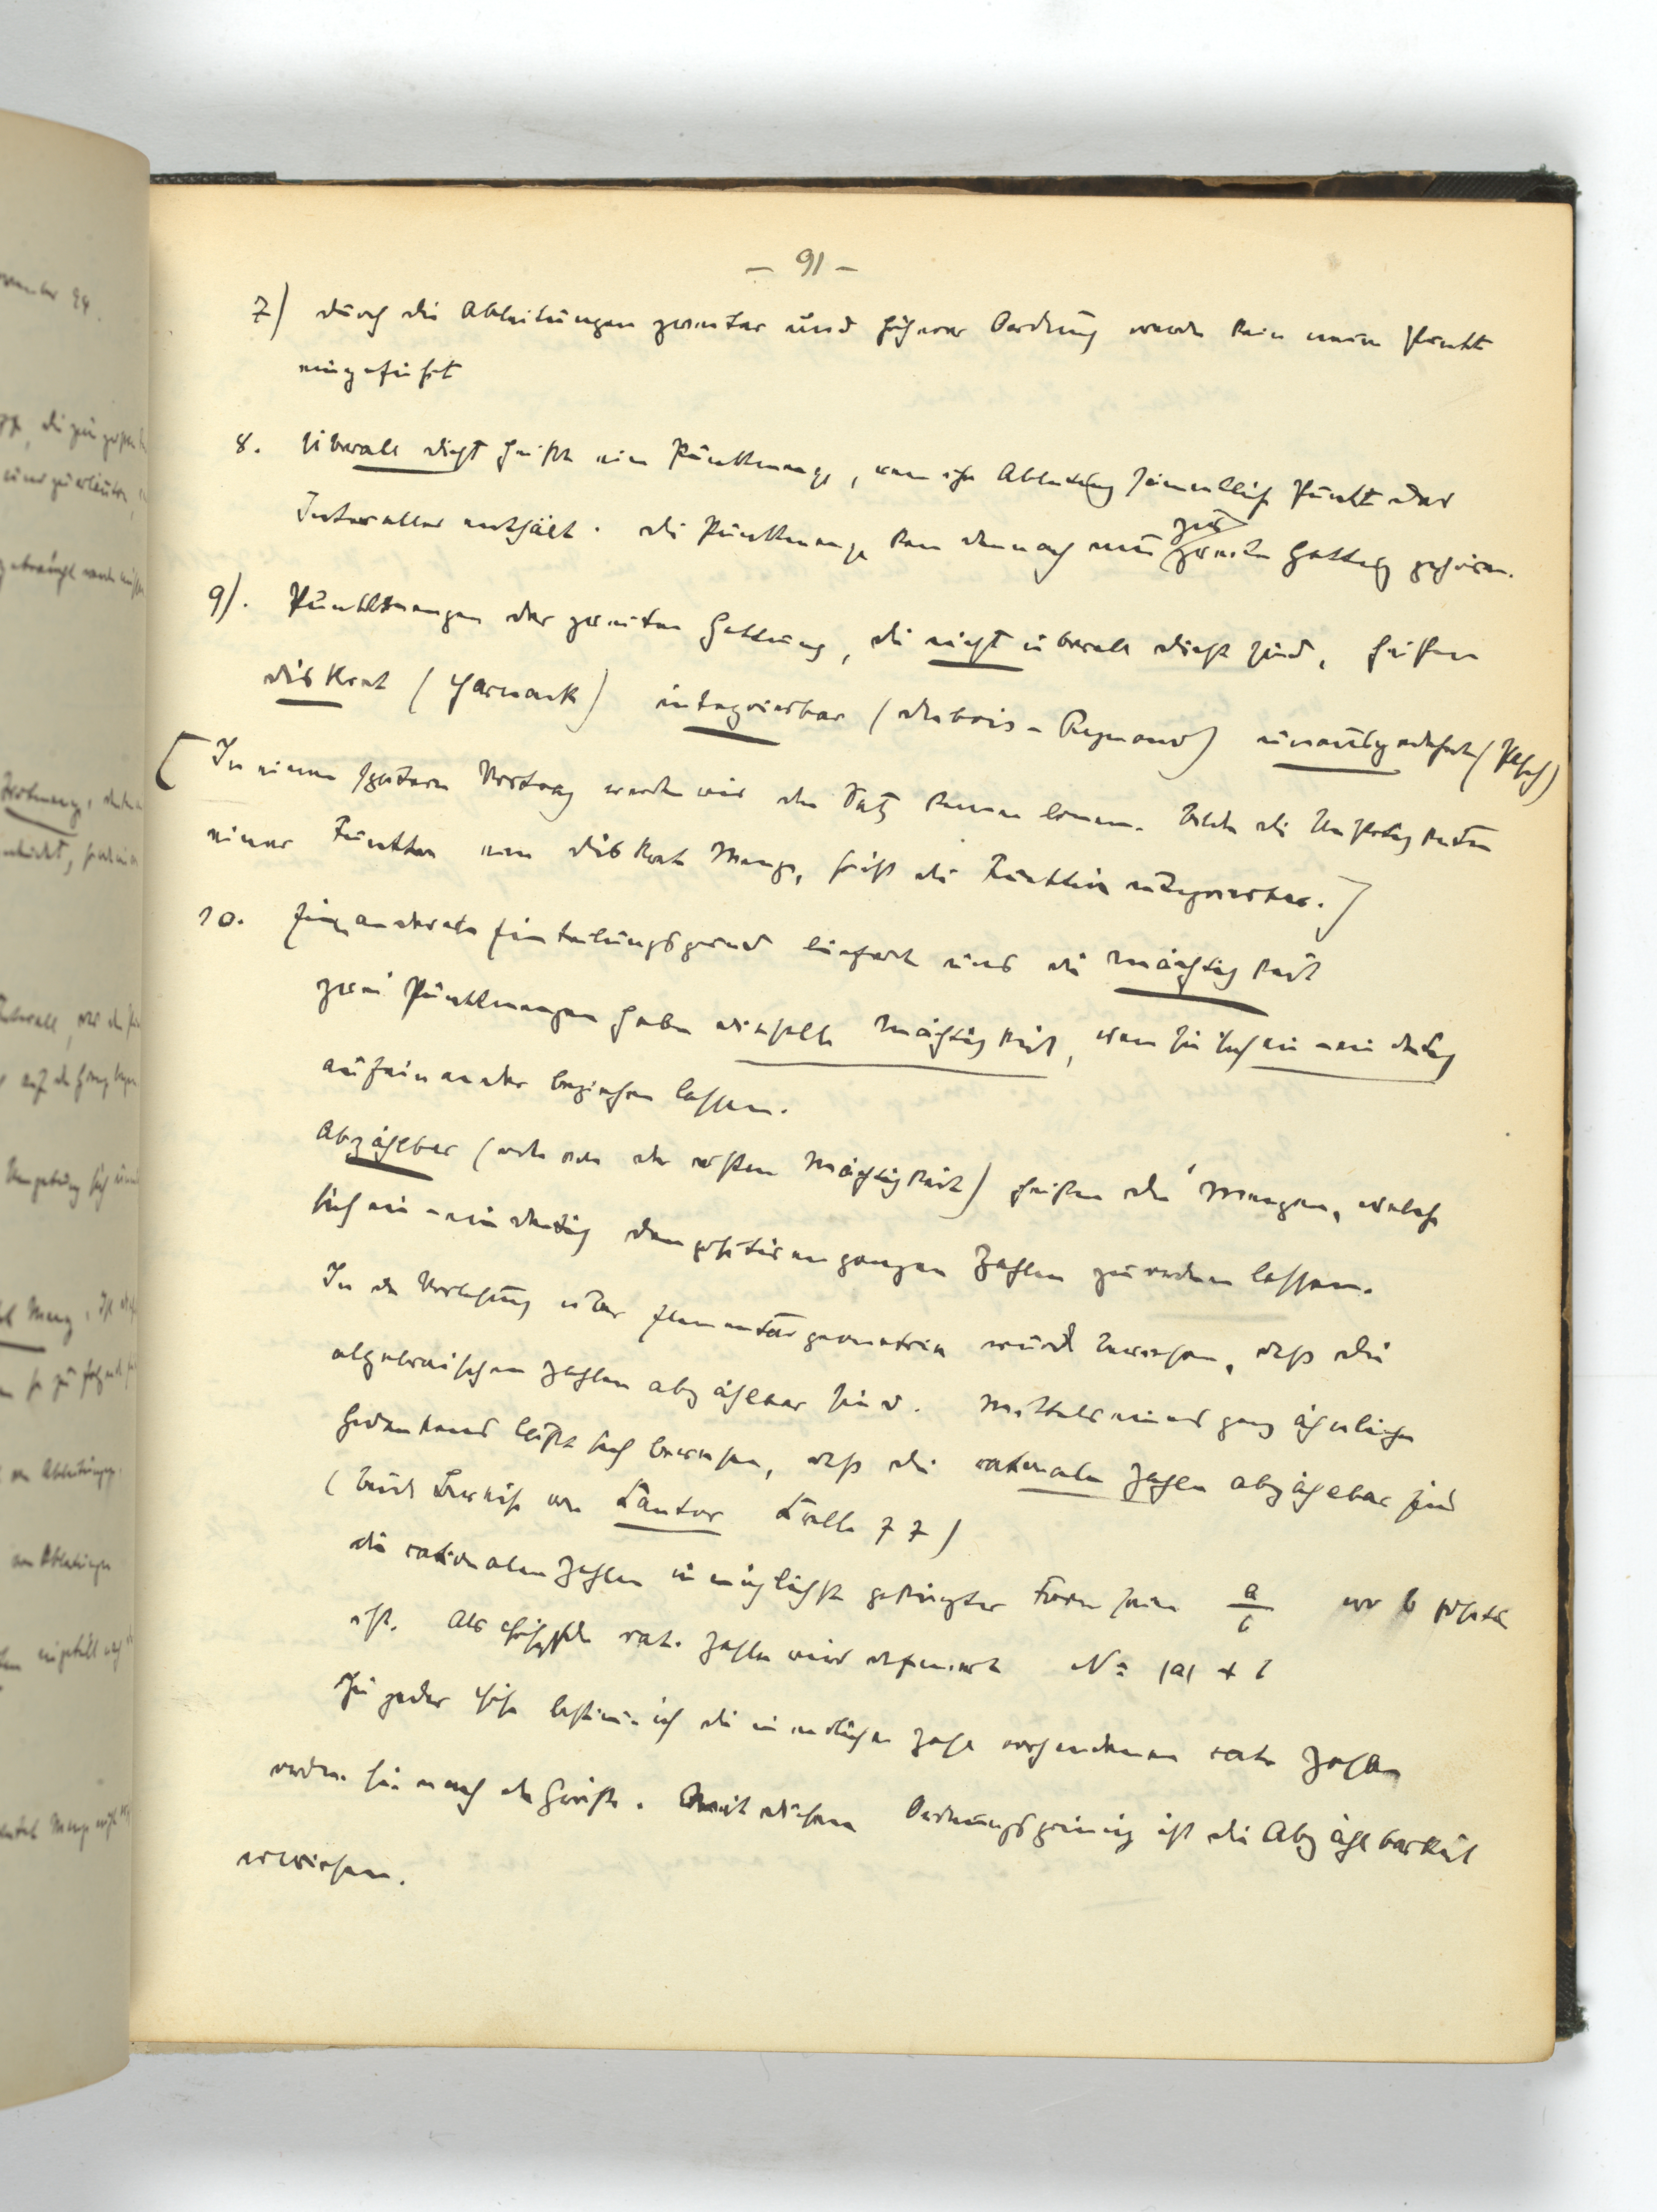 – 91 –
7) durch die Ableitungen zweiter und höherer Ordnung werden kein neuer Punkt
eingeführt
8. Überall dicht heißt eine Punktmenge, wenn ihre Ableitung sämmtliche Punkte des
Intervalles enthält. die Punktmenge kann dennoch nur zur zweiten Gattung gehören.
9). Punktmengen der zweiten Gattung, die nicht überall dicht sind, heißen
diskret (Harnack) integrierbar (dubois-Reymond) unausgedehnt (Pasch)
[In einem späteren Vortrag werden wir den Satz kennen lernen. Bilden die Unstetigkeiten
einer Funktion eine diskrete Menge, heißt die Funktion integrierbar.]
10. Einen anderen Einteilungsgrund liefert uns die Mächtigkeit
zwei Punktmengen haben dieselbe Mächtigkeit, wenn sie sich ein-eindeutig
aufeinander beziehen lassen.
Abzählbar (oder von der ersten Mächtigkeit) heißen die Mengen, welche
sich ein-eindeutig den positiven ganzen Zahlen zuordnen lassen.
In der Vorlesung über Elementargeometrie wurde bewiesen, daß die
algebraischen Zahlen abzählbar sind. Mittels eines ganz ähnlichen
Gedankens läßt sich beweisen, daß die rationalen Zahlen abzählbar sind
(beide Beweise von Cantor Crelle 77)
die rationalen Zahlen in möglichst gekürzter Form seien a/b wo b positiv
ist. Als Höhe der rat. Zahlen wird definiert N = |a| + b
Zu jeder Höhe bestimme ich die in endlicher Zahl vorhandenen rat. Zahlen
ordne sie nach der Größe. Mit diesem Ordnungsprinzip ist die Abzählbarkeit
erwiesen.